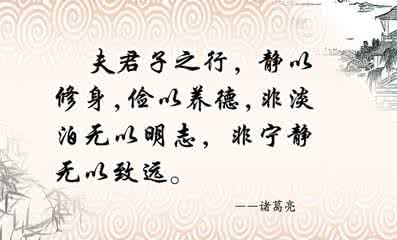 夫君子之行，静以
修身，俭以养德，非淡
泊无以明志，非宁静
无以致远。
——诸葛亮